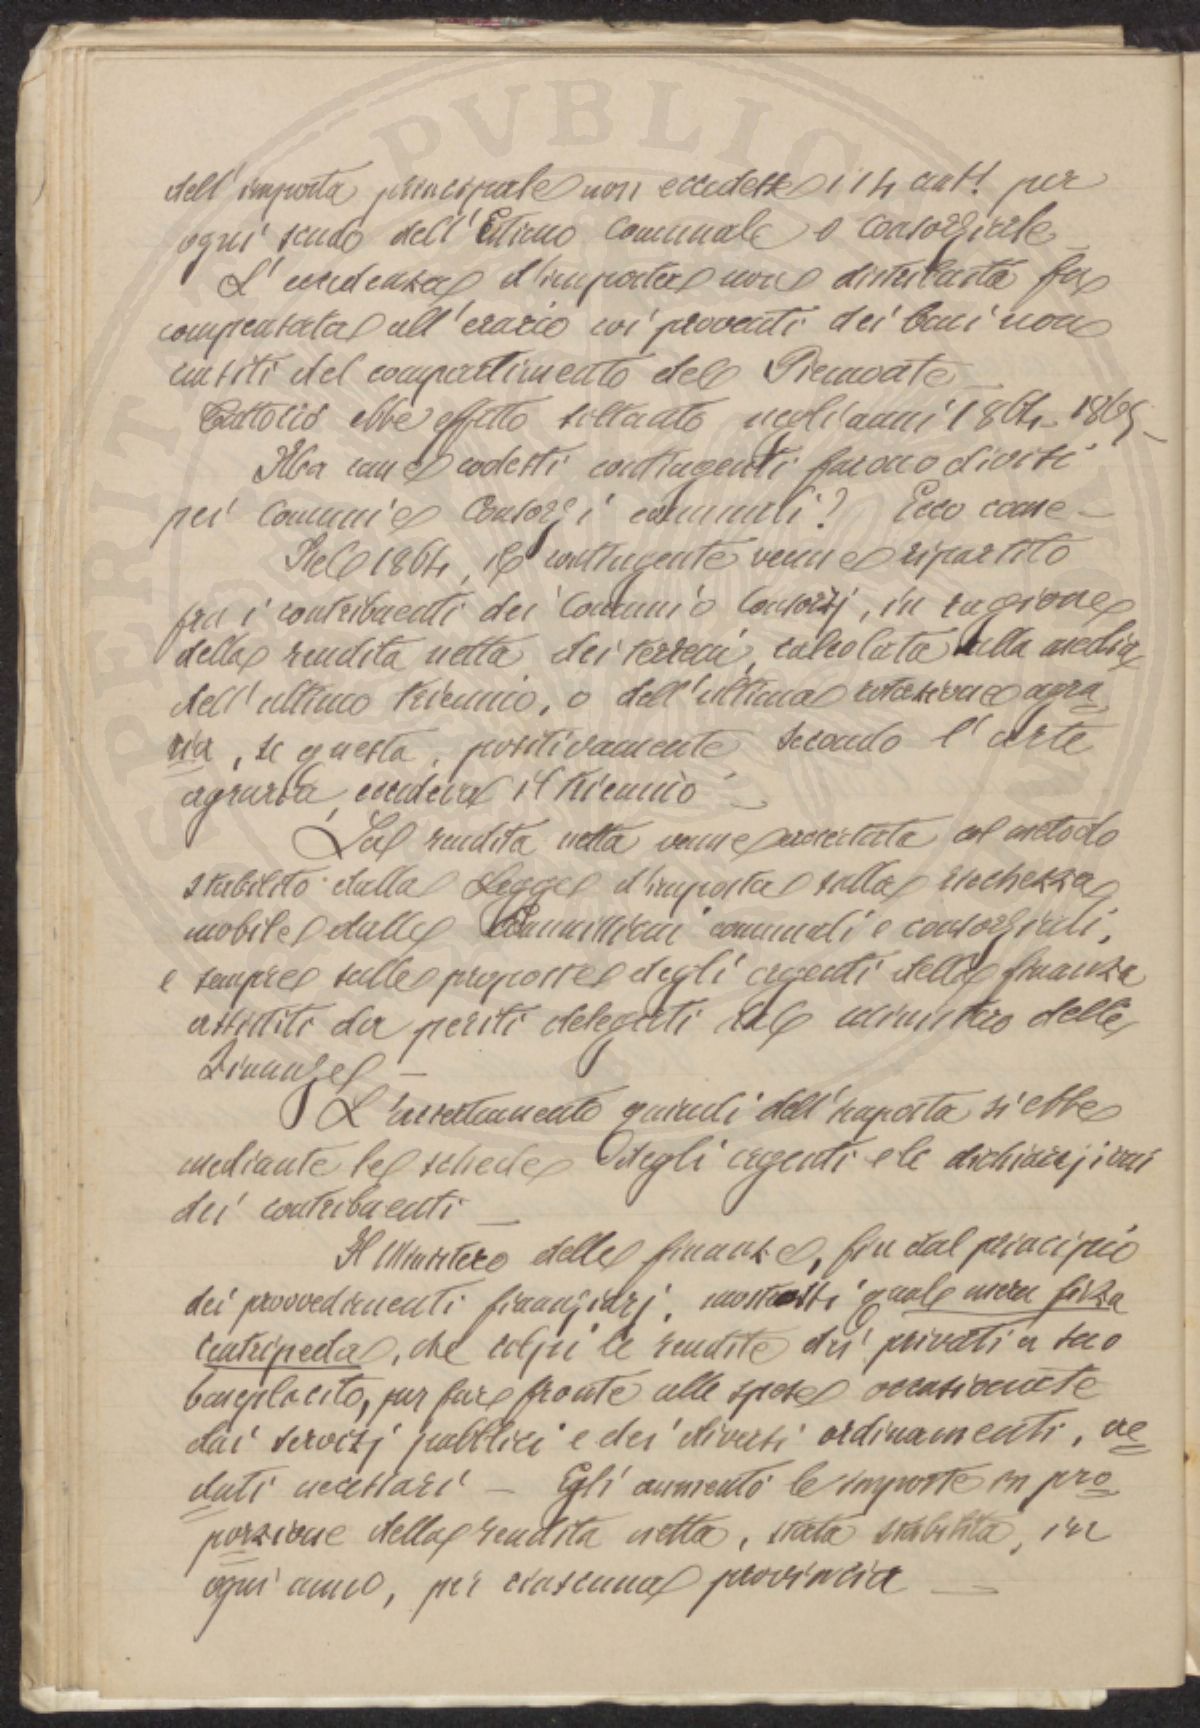 dell'imposta principale non eccedesse i 14 cent! per
ogni scudo dell'Estimo Comunale o Consorziale
L'eccedenza d'imposta non distribuita fu
compensata all'erario coi proventi dei beni non
censiti del compartimento del Piemonte
Cattolio ebbe effetto soltanto negli anni 1864-1865_
Ma come codesti contingenti furono divisi
pei Comuni e Consorzi comunali? Ecco come -
Nel 1864, il contingente venne ripartito
fra i contribuenti dei Comuni o Consorzj, in ragione
della rendita netta dei terreni, calcolata sulla media
dell'ultimo triennio, o dell'ultima rotazione agra
ria, se questa, positivamente secondo l'arte
agraria, eccedeva il triennio -
La rendita netta venne accertata col metodo
stabilito dalla Legge d'imposta sulla ricchezza
mobile dalle Commissioni comunali e consorziali,
e sempre sulle proposte degli agenti delle finanze
assistiti da periti delegati dal ministro delle
Finanze -
L'accertamento quindi dell'imposta si ebbe
mediante le schede degli agenti e le dichiarazioni
dei contribuenti -
Il Ministero delle finanze, fin dal principio
dei provvedimenti finanziarj, mostrossi quale mera forza
centripeda, che colpì le rendite dei privati a suo
beneplacito, per fare fronte alle spese occasionate
dai servizj pubblici e dei diversi ordinamenti, cre
duti necessari - Egli aumentò le imposte in pro
porzione della rendita netta, stata stabilita, in
ogni anno, per ciascuna provincia -
PVBLICA